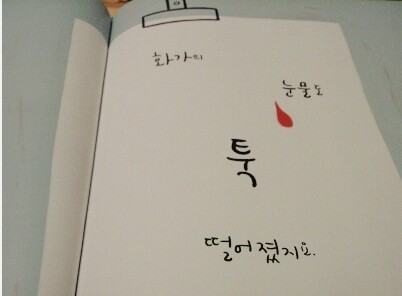 화가의
눈물도
툭
떨어졌지요.